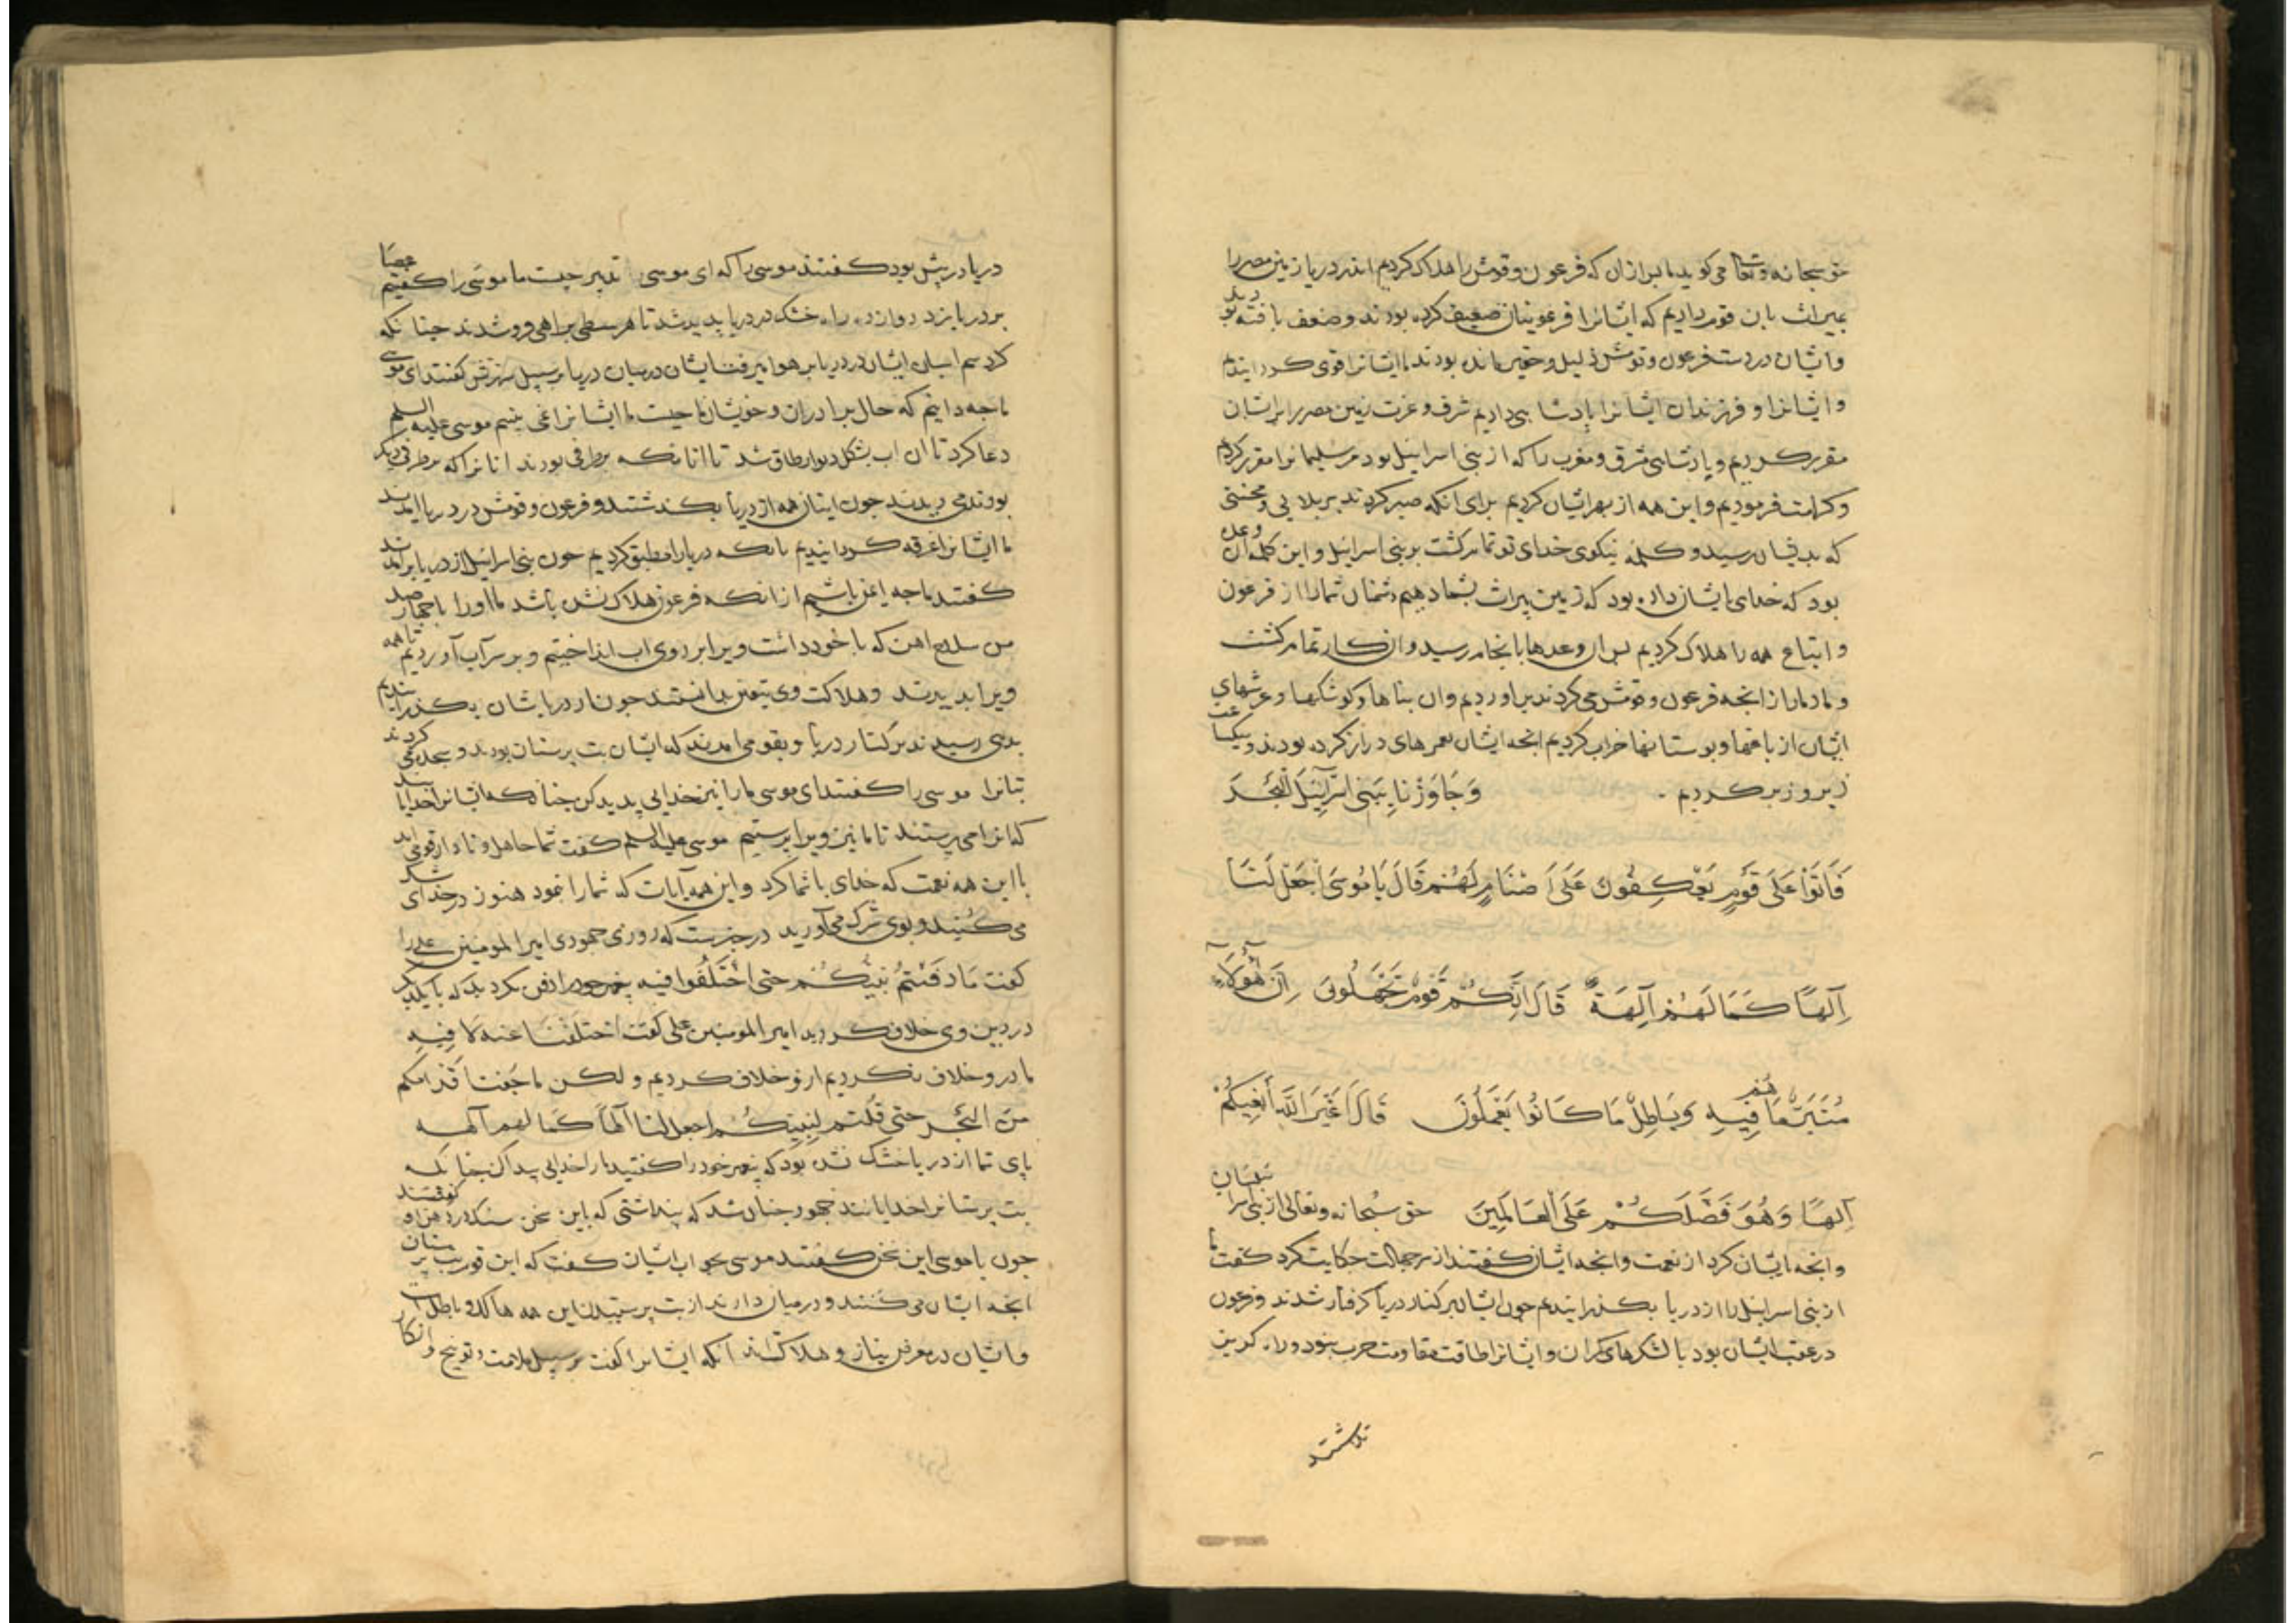 حق سبحانه وتعالی می کوید ما بس ازان که فرعون وقومش را هلاک کردیم اندر دریا زمین مصر را
بمیراث بان قوم دادیم که ایشانرا فرعونیان ضعیف کرده بودند وضعف یافته بودند
وایشان در دست فرعون وقومش ذلیل وحقیر مانده بودند ما ایشانرا قوی کردانیدیم
وایشانرا و فرزندان ایشانرا پادشاهی دادیم شرف وعزت زمین مصر را برایشان
مقرر کردیم وپادشاهی مشرق ومغرب را که از بنی اسرائیل بود مر سلیمانرا مقرر کردیم
وکرامت فرمودیم واین همه از بهر ایشان کردیم برای انکه صبر کردند بر بلایی ومحنتی
که بدیشان رسید و کلمه نیکوی خدای تو تمام کشت بر بنی اسرائیل واین کلمه ان وعده
بود که خدای ایشان داده بود که زمین میراث بشما دهیم دشمنان شمارا از فرعون
واتباع همه را هلاک کردیم بس ان وعدها بانجام رسید وان کار تمام کشت
وما دمار از انجه فرعون وقومش می کردند براوردیم وان بناها وکوشکها وعرشهای
ایشان از باغها وبوستانها خراب کردیم انجه ایشان بعمرهای دراز کرده بودند بیکساعت
زیر وزبر کردیم . وَجَاوَزْنَا بِبَنِی اِسْرَآئِیلَ الْبَحْرَ
فَاَتَوْا عَلَی قَوْمٍ یَعْکِفُونَ عَلَی اَصْنَامٍ لَهُمْ قَالَ یَا مُوسَی اجْعَلْ لَنَا
اِلَهًا کَمَا لَهُمْ آلِهَةٌ قَالَ اِنَّکُمْ قَوْمٌ تَجْهَلُونَ اِنَّ هَؤُلَآءِ
مُتَبَّرٌ مَا هُمْ فِیهِ وَبَاطِلٌ مَا کَانُوا یَعْمَلُونَ قَالَ اَغَیْرَ اللّهِ اَبْغِیکُمْ
اِلَهًا وَهُوَ فَضَّلَکُمْ عَلَی الْعَالَمِینَ حق سبحانه وتعالی از بنی اسرا
وانجه ایشان کرد از نعمت وانجه ایشان کفتند از سر جهالت حکایت کرد کفت ما
از بنی اسرائیل را از دریا بکذرانیدیم جون ایشان بر کنار دریا کرفتار شدند وفرعون
در عقب ایشان بود با لشکرهای کران وایشانرا طاقت مقاومت حرب نبود وراه کریز
نداشتند
دریا در پیش بود کفتند موسی را که ای موسی تدبیر جیست ما موسی را کفتیم عصا
بر دریا زد دوازده راه خشک در دریا پدید شد تا هر سبطی براهی فرو شدند جنانکه
کرد سم اسبان ایشان در دریا بر هوا میرفت ایشان در میان دریا بر سبیل سرزنش کفتند ای موسی
ما جه دانیم که حال برادران وخویشان ما جیست ما ایشانرا نمی بینیم موسی علیه السلم
دعا کرد تا ان اب بشکل دیوار طاق شد تا انانکه بر طرفی بودند انانرا که بر طرفی دیکر
بودند می دیدند جون ایشان همه از دریا بکذشتند و فرعون وقومش در دریا امدند
ما ایشانرا غرقه کردانیدیم بانکه دریا را مطبق کردیم جون بنی اسرائیل از دریا برامدند
کفتند ما جه ایمن باشیم از انکه فرعون هلاک نشده باشد ما اورا با جهار صد
من سلاح اهن که با خود داشت ویرا بر روی اب انداختیم و بر سر آب آوردیم تا همه
ویرا بدیدند وهلاکت وی بیقین بدانستند جون از دریا ایشان بکذرانیدیم
بدهی رسیدند بر کنار دریا و بقومی امدند که ایشان بت پرستان بودند و سجده می کردند
بتانرا موسی را کفتند ای موسی ما را نیز خدایی پدید کن جنانکه ایشانرا خدایانند
که انرا می پرستند تا ما نیز ویرا پرستیم موسی علیه السلم کفت شما جاهل ونادان قومی اید
با این همه نعمت که خدای با شما کرد واین همه آیات که شمارا نمود هنوز در خدای شک
می کنید وبوی شرک می آورید در خبرست که روزی جهودی امیر المومنین علی را
کفت مَا دَفَنْتُمْ نَبِیَّکُمْ حتی اخْتَلَفُوا فیه پیغمبر خود را دفن نکردید که با یکدیکر
در دین وی خلاف کردید امیر المومنین علی کفت اختَلَفْنَا عنه لَا فِیهِ
ما در و خلاف نکردیم از و خلاف کردیم و لکن ما جَفَّت اَقْدَامکم
مِنَ الْبَحْرِ حتی قُلتم لِنَبِیِّکُمْ اجعل لنا الهاً کَمَا لهم آلهه
پای شما از دریا خشک نشده بود که پیغمبر خود را کفتید ما را خدایی پیدا کن جنانکه
بت پرستانرا خدایانند جهود جنان شد که پنداشتی که باین سخن سنک در دهن او
جون با موسی این سخن کفتند موسی بجواب ایشان کفت که این قوم بت پرستان
انجه ایشان می کنند و در میان دارند از بت پرستیدن این همه هالک و باطل است
وایشان در معرض نیاز و هلاک اند انکه ایشانرا کفت بر سبیل ملامت وتوبیخ وانکار